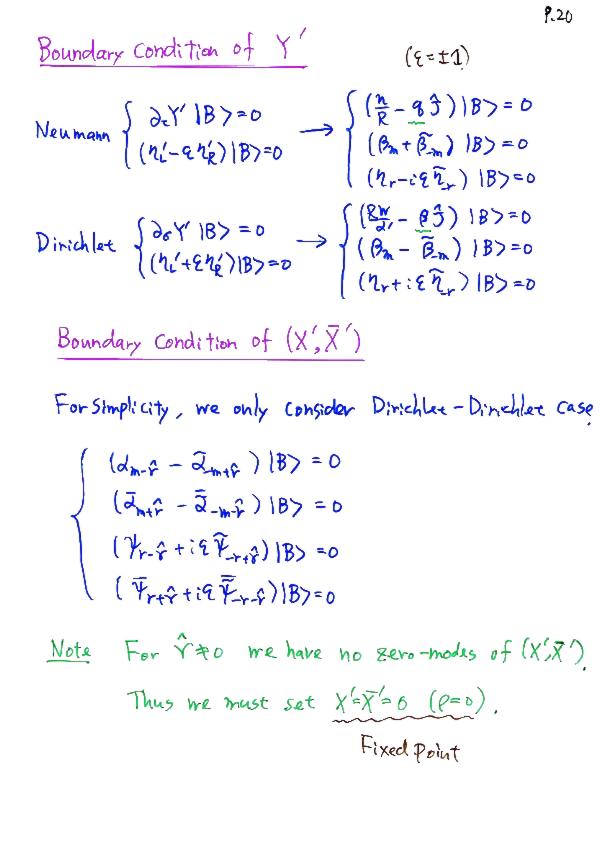 P.20
Boundary Condition of Y′ (ε=±1)
Neumann { ∂τY′ |B>=0 → { (n/R − qĴ)|B>=0
(η′L−εη′R)|B>=0 (βm+β̃-m)|B>=0
(ηr−iεη̃-r)|B>=0
Dirichlet { ∂σY′ |B>=0 → { (RW/α′ − βĴ)|B>=0
(η′L+εη′R)|B>=0 (βm−β̃-m)|B>=0
(ηr+iεη̃-r)|B>=0
Boundary Condition of (X′,X̄′)
For Simplicity, we only consider Dirichlet-Dirichlet case.
{ (αm-γ̂ − α̃-m+γ̂)|B>=0
(ᾱm+γ̂ − ᾱ̃-m-γ̂)|B>=0
(ψr-γ̂ + iεψ̃-r+γ̂)|B>=0
(ψ̄r+γ̂ + iεψ̄̃-r-γ̂)|B>=0
Note For γ̂≠0 we have no zero-modes of (X′,X̄′).
Thus we must set X′=X̄′=0 (ρ=0).
Fixed point